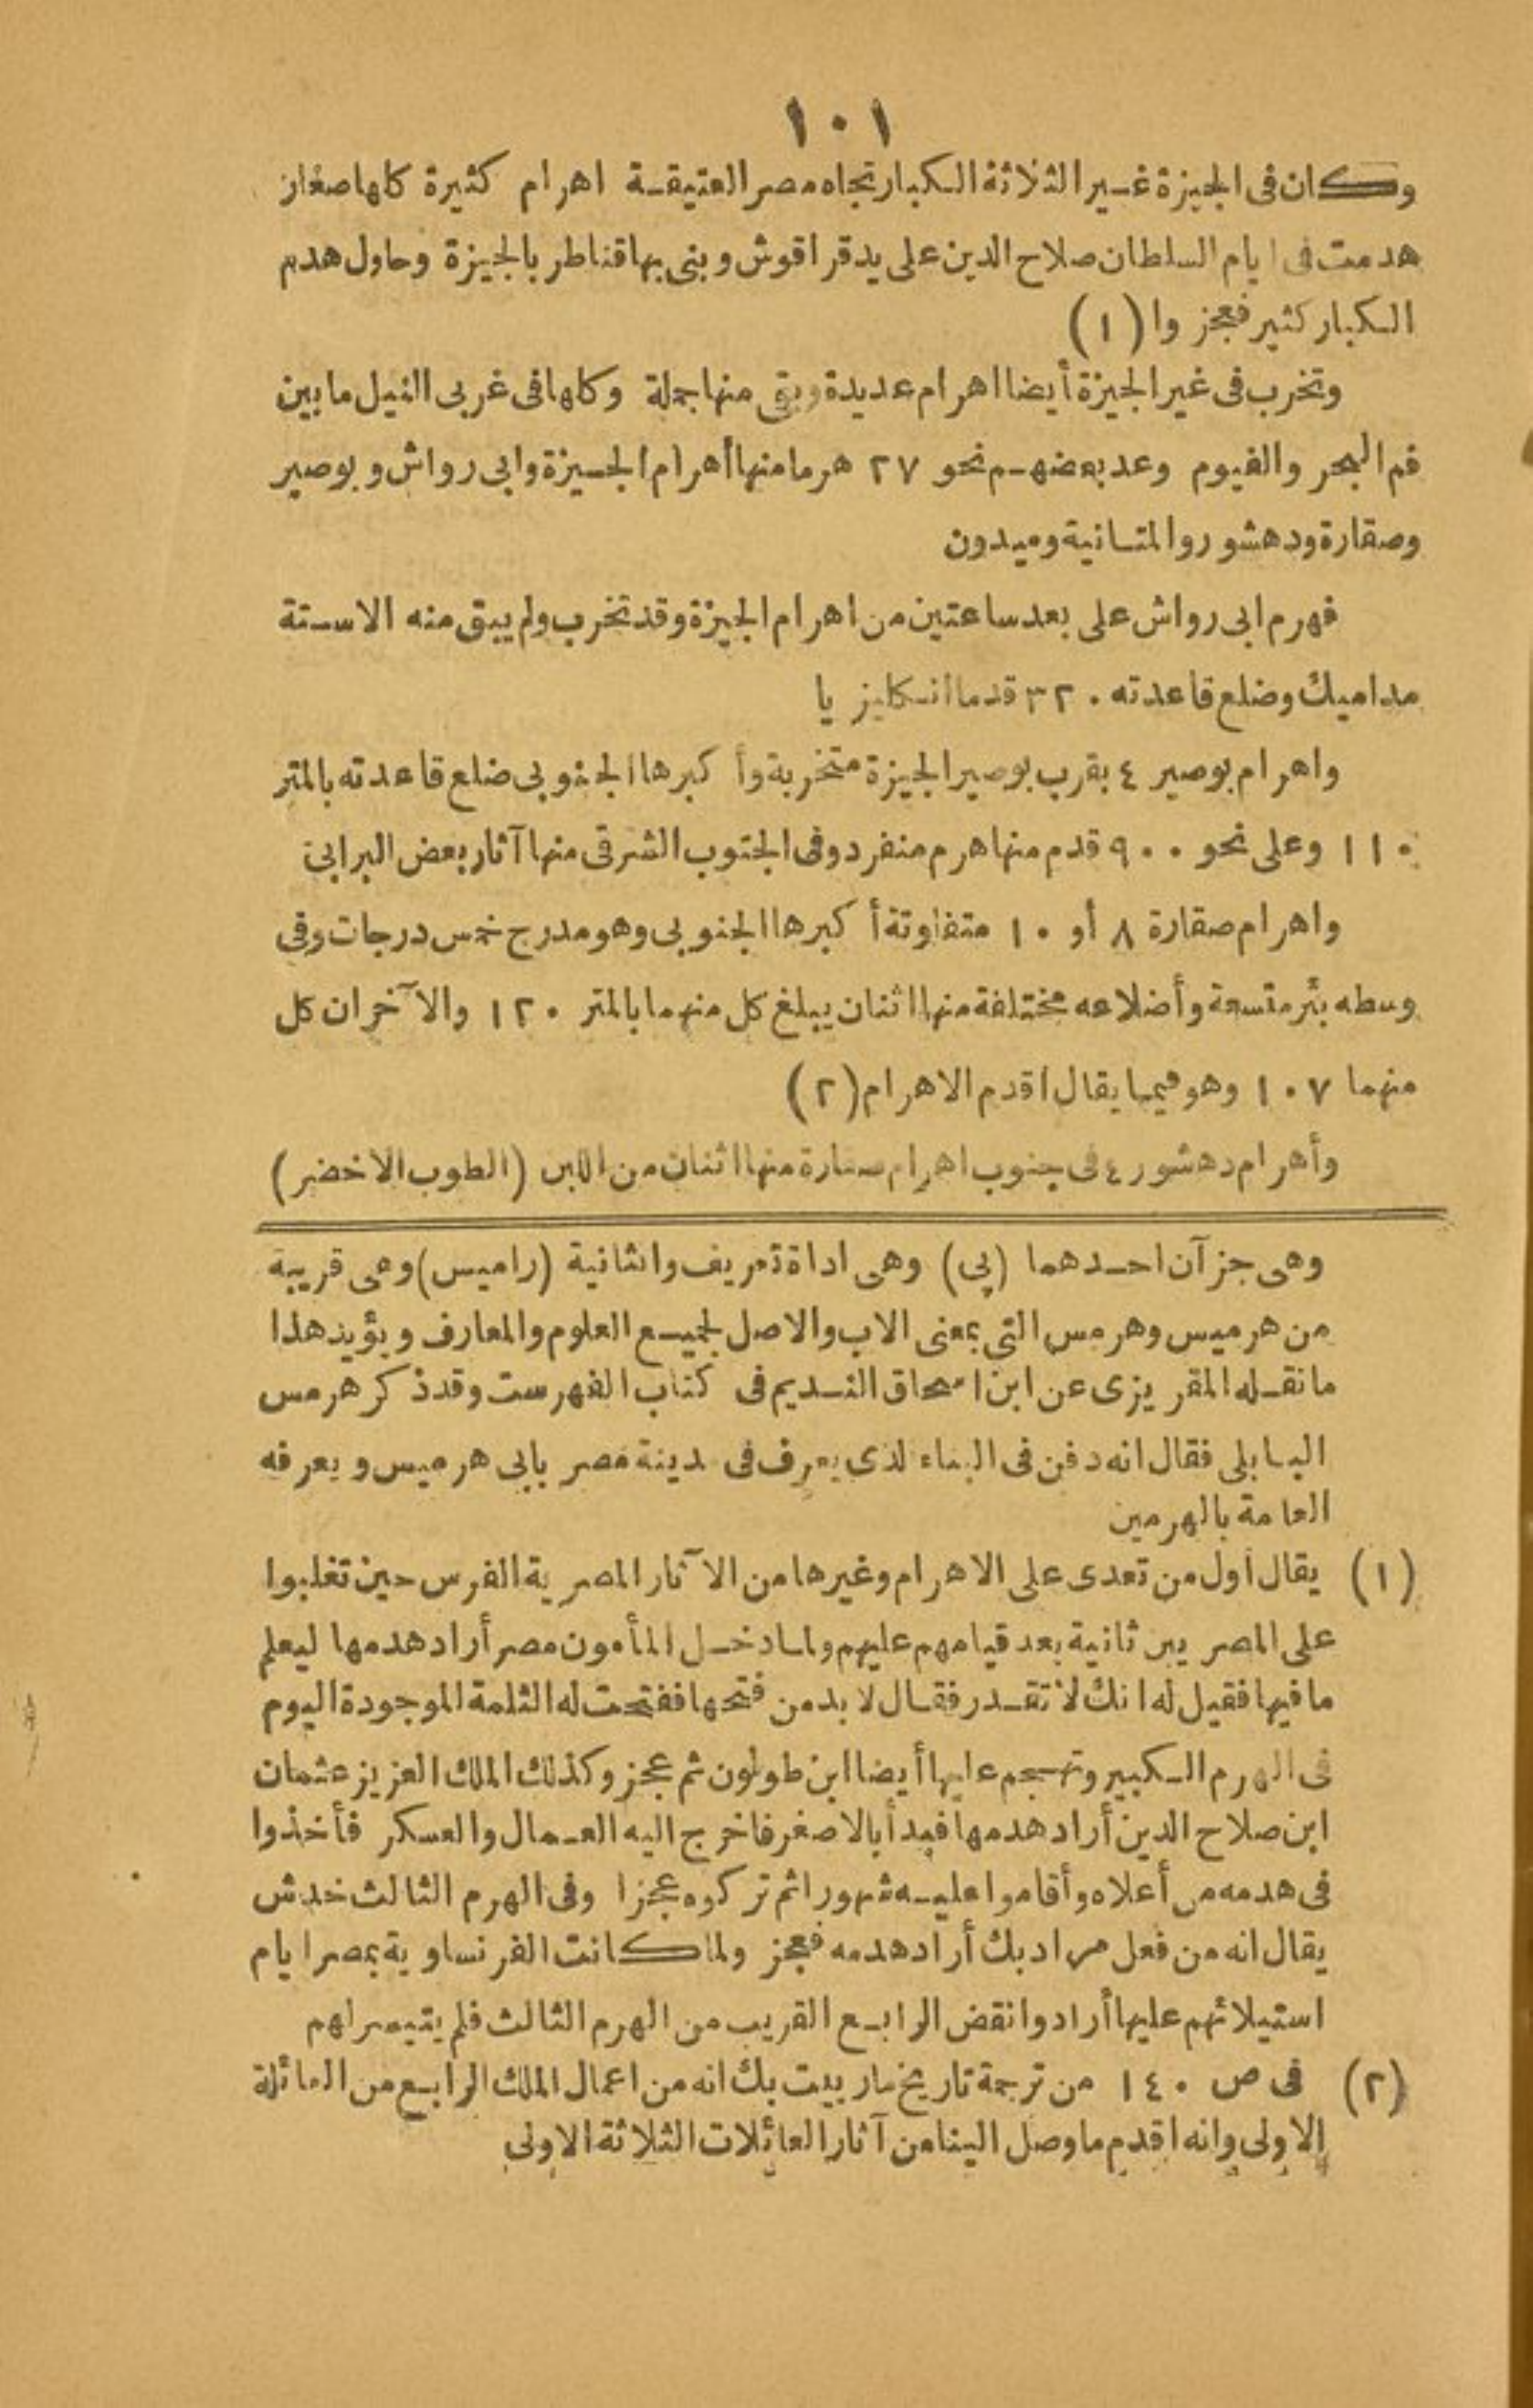 ١٠١
وكان فى الجيزة غير الثلاثة الكبار تجاه مصر العتيقة اهرام كثيرة كلها صغار
هدمت فى ايام السلطان صلاح الدين على يد قراقوش وبنى بها قناطر بالجيزة وحاول هدم
الكبار كثير فعجزوا (١)
وتخرب فى غير الجيزة أيضا اهرام عديدة وبقى منها جملة وكلها فى غربى النيل ما بين
فم البحر والفيوم وعد بعضهم نحو ٢٧ هرما منها أهرام الجيزة وابى رواش وبوصير
وصقارة ودهشور والمتانية وميدون
فهرم ابى رواش على بعد ساعتين من اهرام الجيزة وقد تخرب ولم يبق منه الا ستة
مداميك وضلع قاعدته ٣٢٠ قدما أنكليزيا
واهرام بوصير ٤ بقرب بوصير الجيزة متخربة وأكبرها الجنوبى ضلع قاعدته بالمتر
١١٠ وعلى نحو ٩٠٠ قدم منها هرم منفرد وفى الجنوب الشرقى منها آثار بعض البرابى
واهرام صقارة ٨ أو ١٠ متفاوتة أكبرها الجنوبى وهو مدرج خمس درجات وفى
وسطه بئر متسعة وأضلاعه مختلفة منها اثنان يبلغ كل منهما بالمتر ١٢٠ والآخران كل
منهما ١٠٧ وهو فيما يقال اقدم الاهرام (٢)
وأهرام دهشور ٤ فى جنوب اهرام صقارة منها اثنان من اللبن (الطوب الاخضر)
وهى جزآن احدهما (پى) وهى اداة تعريف والثانية (راميس) وهى قريبة
من هرميس وهرمس التى بمعنى الاب والاصل لجميع العلوم والمعارف ويؤيد هذا
ما نقله المقريزى عن ابن اسحاق النديم فى كتاب الفهرست وقد ذكر هرمس
البابلى فقال انه دفن فى البناء الذى يعرف فى مدينة مصر بابى هرميس ويعرفه
العامة بالهرمين
(١) يقال اول من تعدى على الاهرام وغيرها من الآثار المصرية الفرس حين تغلبوا
على المصريين ثانية بعد قيامهم عليهم ولما دخل المأمون مصر أراد هدمها ليعلم
ما فيها فقيل له انك لا تقدر فقال لا بد من فتحها ففتحت له الثلمة الموجودة اليوم
فى الهرم الكبير وتهجم عليها أيضا ابن طولون ثم عجز وكذلك الملك العزيز عثمان
ابن صلاح الدين أراد هدمها فبدأ بالاصغر فاخرج اليه العمال والعسكر فأخذوا
فى هدمه من أعلاه وأقاموا عليه شهورا ثم تركوه عجزا وفى الهرم الثالث خدش
يقال انه من فعل مراد بك أراد هدمه فعجز ولما كانت الفرنساوية بمصر ايام
استيلائهم عليها أرادوا نقض الرابع القريب من الهرم الثالث فلم يتيسر لهم
(٢) فى ص ١٤٠ من ترجمة تاريخ مارييت بك انه من اعمال الملك الرابع من العائلة
الاولى وانه اقدم ما وصل الينا من آثار العائلات الثلاثة الاولى